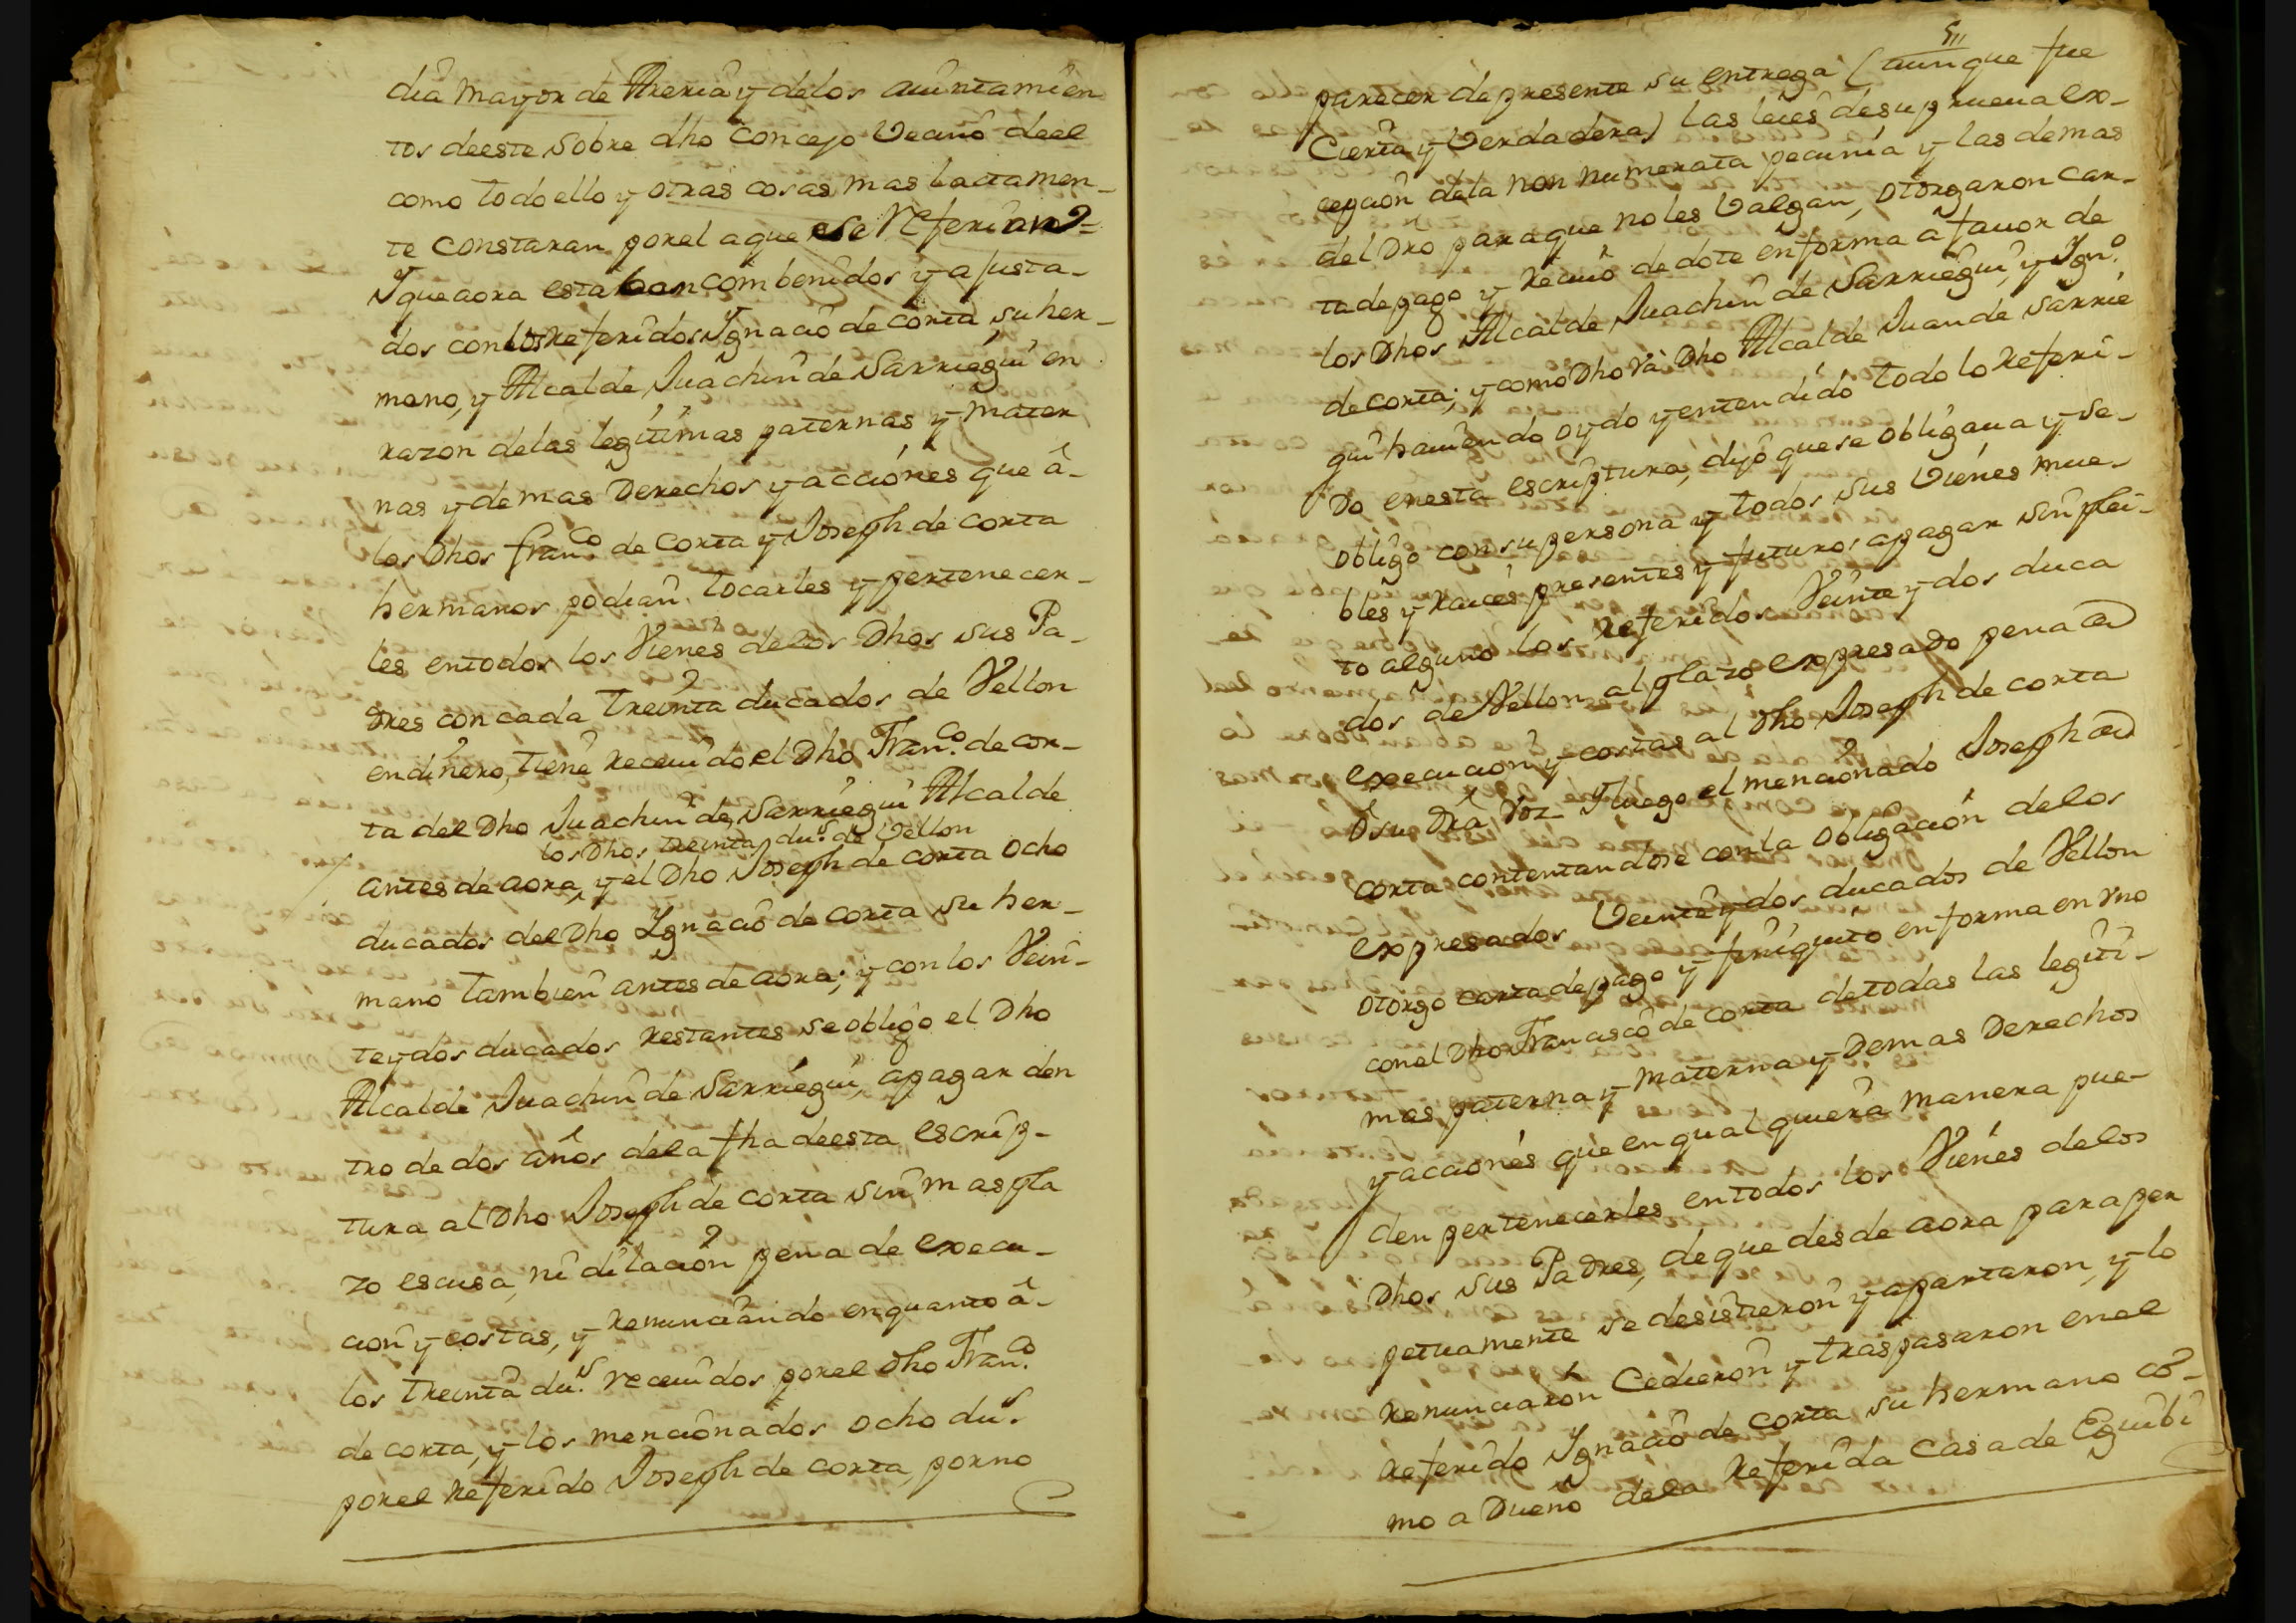 dia mayor de Areria y delos aiuntamien
tos deeste sobre dho Concejo Vecinô deel
como todo ello y otras cosas mas lactamen-
te constaran porel aque se Referian=
Y que aora estaban combenidos y ajusta-
dos con los Referidos Ygnaciô de corta su her-
mano, y Alcalde Juachin de Sarriegui en
razon delas legitimas paternas y mater
nas y demas Derechos y acciones que â-
los Dhos franco. de Corta y Joseph de corta
hermanos podian tocarles y pertenecer-
les entodos los Vienes delos Dhos sus Pa-
Dres con cada treinta ducados de Vellon
endinero, tiene Receuido el Dho Franco. de cor-
ta del Dho Juachin de Sarriegui Alcalde
los Dhos treinta dus. de Vellon
antes de aora, y el Dho Joseph de corta ocho
ducados del Dho Ygnaciô de corta su her-
mano tambien antes de aora; y con los Vein-
te y dos ducados Restantes se obligo el Dho
Alcalde Juachin de Sarriegui, apagar den
tro de dos años dela fha deesta escrip-
tura al Dho Joseph de corta sin mas pla
zo escusa, ni dilacion pena de execu-
cion y costas, y Renunciando enquanto â-
los treinta dus. receuidos porel Dho Franco.
de corta, y los mencionados ocho dus.
porel Referido Joseph de corta, por no
parecer depresente su entrega (aunque fue
Cierta y Verdadera) las leies desuprueua ex-
cepcion dela non numerata pecunia y las demas
del Dro paraque noles Valgan, otorgaron car-
ta de pago y Reciuô de dote en forma â fauor de
los Dhos Alcalde Juachin de Sarriegui, y Igno.
de corta; y como Dho va Dho Alcalde Juan de Sarrie
gui hauiendo oydo y entendido todo lo Referi-
Do enesta escriptura, dijô quese obligaua y se-
obligô con su persona y todos sus Vienes mue-
bles y Raices presentes y futuros apagar sin plei-
to alguno los Referidos Veinte y dos duca
dos de Vellon al plazo expresado pena de
execucion y costas al Dho Joseph de corta
ô su Dra Voz Y luego el mencionado Joseph de
corta contentandose con la obligacion delos
expresados Veinte y dos ducados de Vellon
otorgo carta de pago y finiquito en forma en vno
con el Dho Francisco de corta de todas las legiti-
mas paterna y materna y Demas Derechos
y acciones que en qual quiera manera pue-
den pertenecerles entodos los Vienes delos
Dhos sus Padres, de que desde aora para per
petuamente se desistieron y apartaron, y lo
Renunciaron Cedieron y traspasaron en el
Referido Ygnaciô de corta su hermano co-
mo a Dueño dela Referida Casa de Eguibi